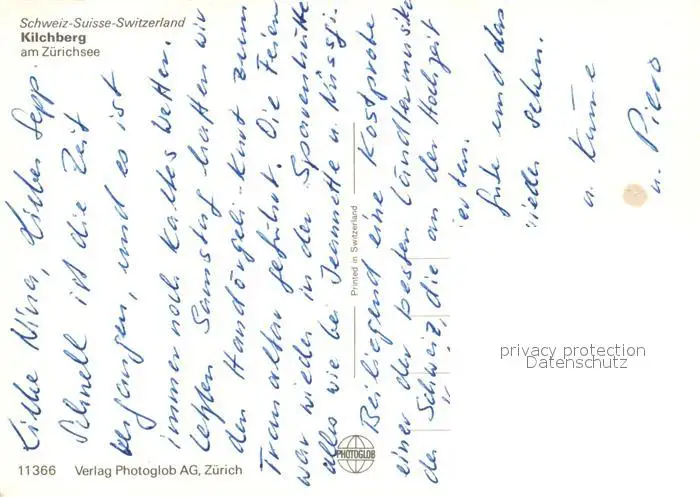 Schweiz-Suisse-Switzerland
Kilchberg
am Zürichsee
Liebe Nina, Lieber Sepp.
Schnell ist die Zeit
vergangen, und es ist
immer noch kaltes Wetter.
Letzten Samstag hatten wir
den Handörgeli-Kurt zum
Traualtar geführt. Die Feier
war wieder in der Spanenhütte
alles wie bei Jeannette u.
Beiliegend eine Kostprobe
einer der besten Ländlermusik
der Schweiz, die an der Hochzeit
ute und das
wieder sehen.
u.
u. Piero
Printed in Switzerland
PHOTOGLOB
11366 Verlag Photoglob AG, Zürich
privacy protection
Datenschutz